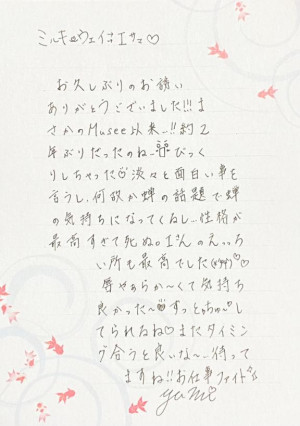 ミルキーウェイ☆エサマ♡
お久しぶりのお誘い
ありがとうございました!!!ま
さかのMusee以来…!!約2
年ぶりだったのね… びっく
りしちゃった 淡々と面白い事を
言うし、何故か蝉の話題で蝉
の気持ちになってくるし…性格が
最高すぎて死ぬ。Iさんのえっち
い所も最高でした
唇やぁらか〜くて気持ち
良かった〜 ずっとちゅーし
てられるね♡またタイミン
グ合うと良いな〜…待って
ますね!!お仕事ファイト
yume